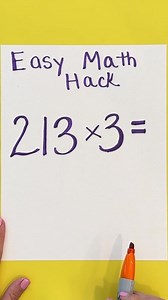 Easy Math
Hack
213×3=